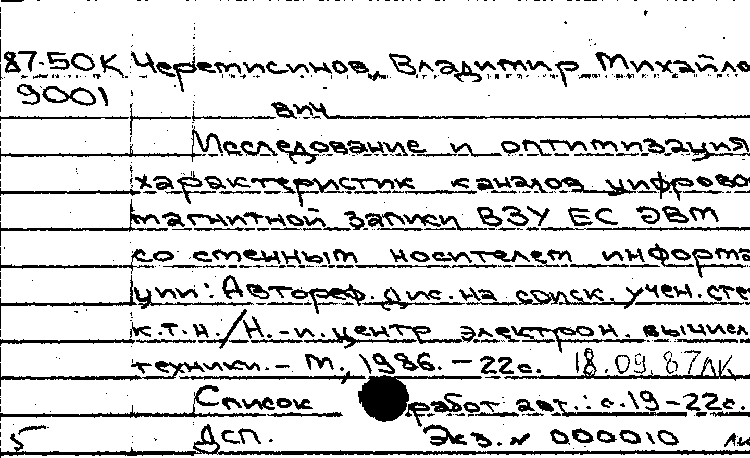 87-50К Черемисинов, Владимир Михайло
9001
вич
Исследование и оптимизация
характеристик каналов цифрово
магнитной записи ВЗУ ЕС ЭВМ
со сменным носителем информа
ции: Автореф. дис. на соиск. учен. сте
к.т.н./Н.-и. центр электрон. вычисл
техники. - М., 1986. - 22с. 18.09.87 ЛК
Список работ авт.: с.19-22с.
5 ДСП. Экз. № 000010